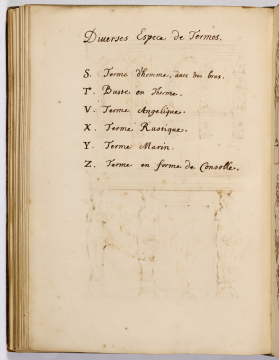 Diverses Espece de Termes.
S. Terme d'homme, avec des bras.
T. Buste en Therme.
V. Terme Angelique.
X. Terme Rustique.
Y. Terme Marin.
Z. Terme en forme de Consolle.